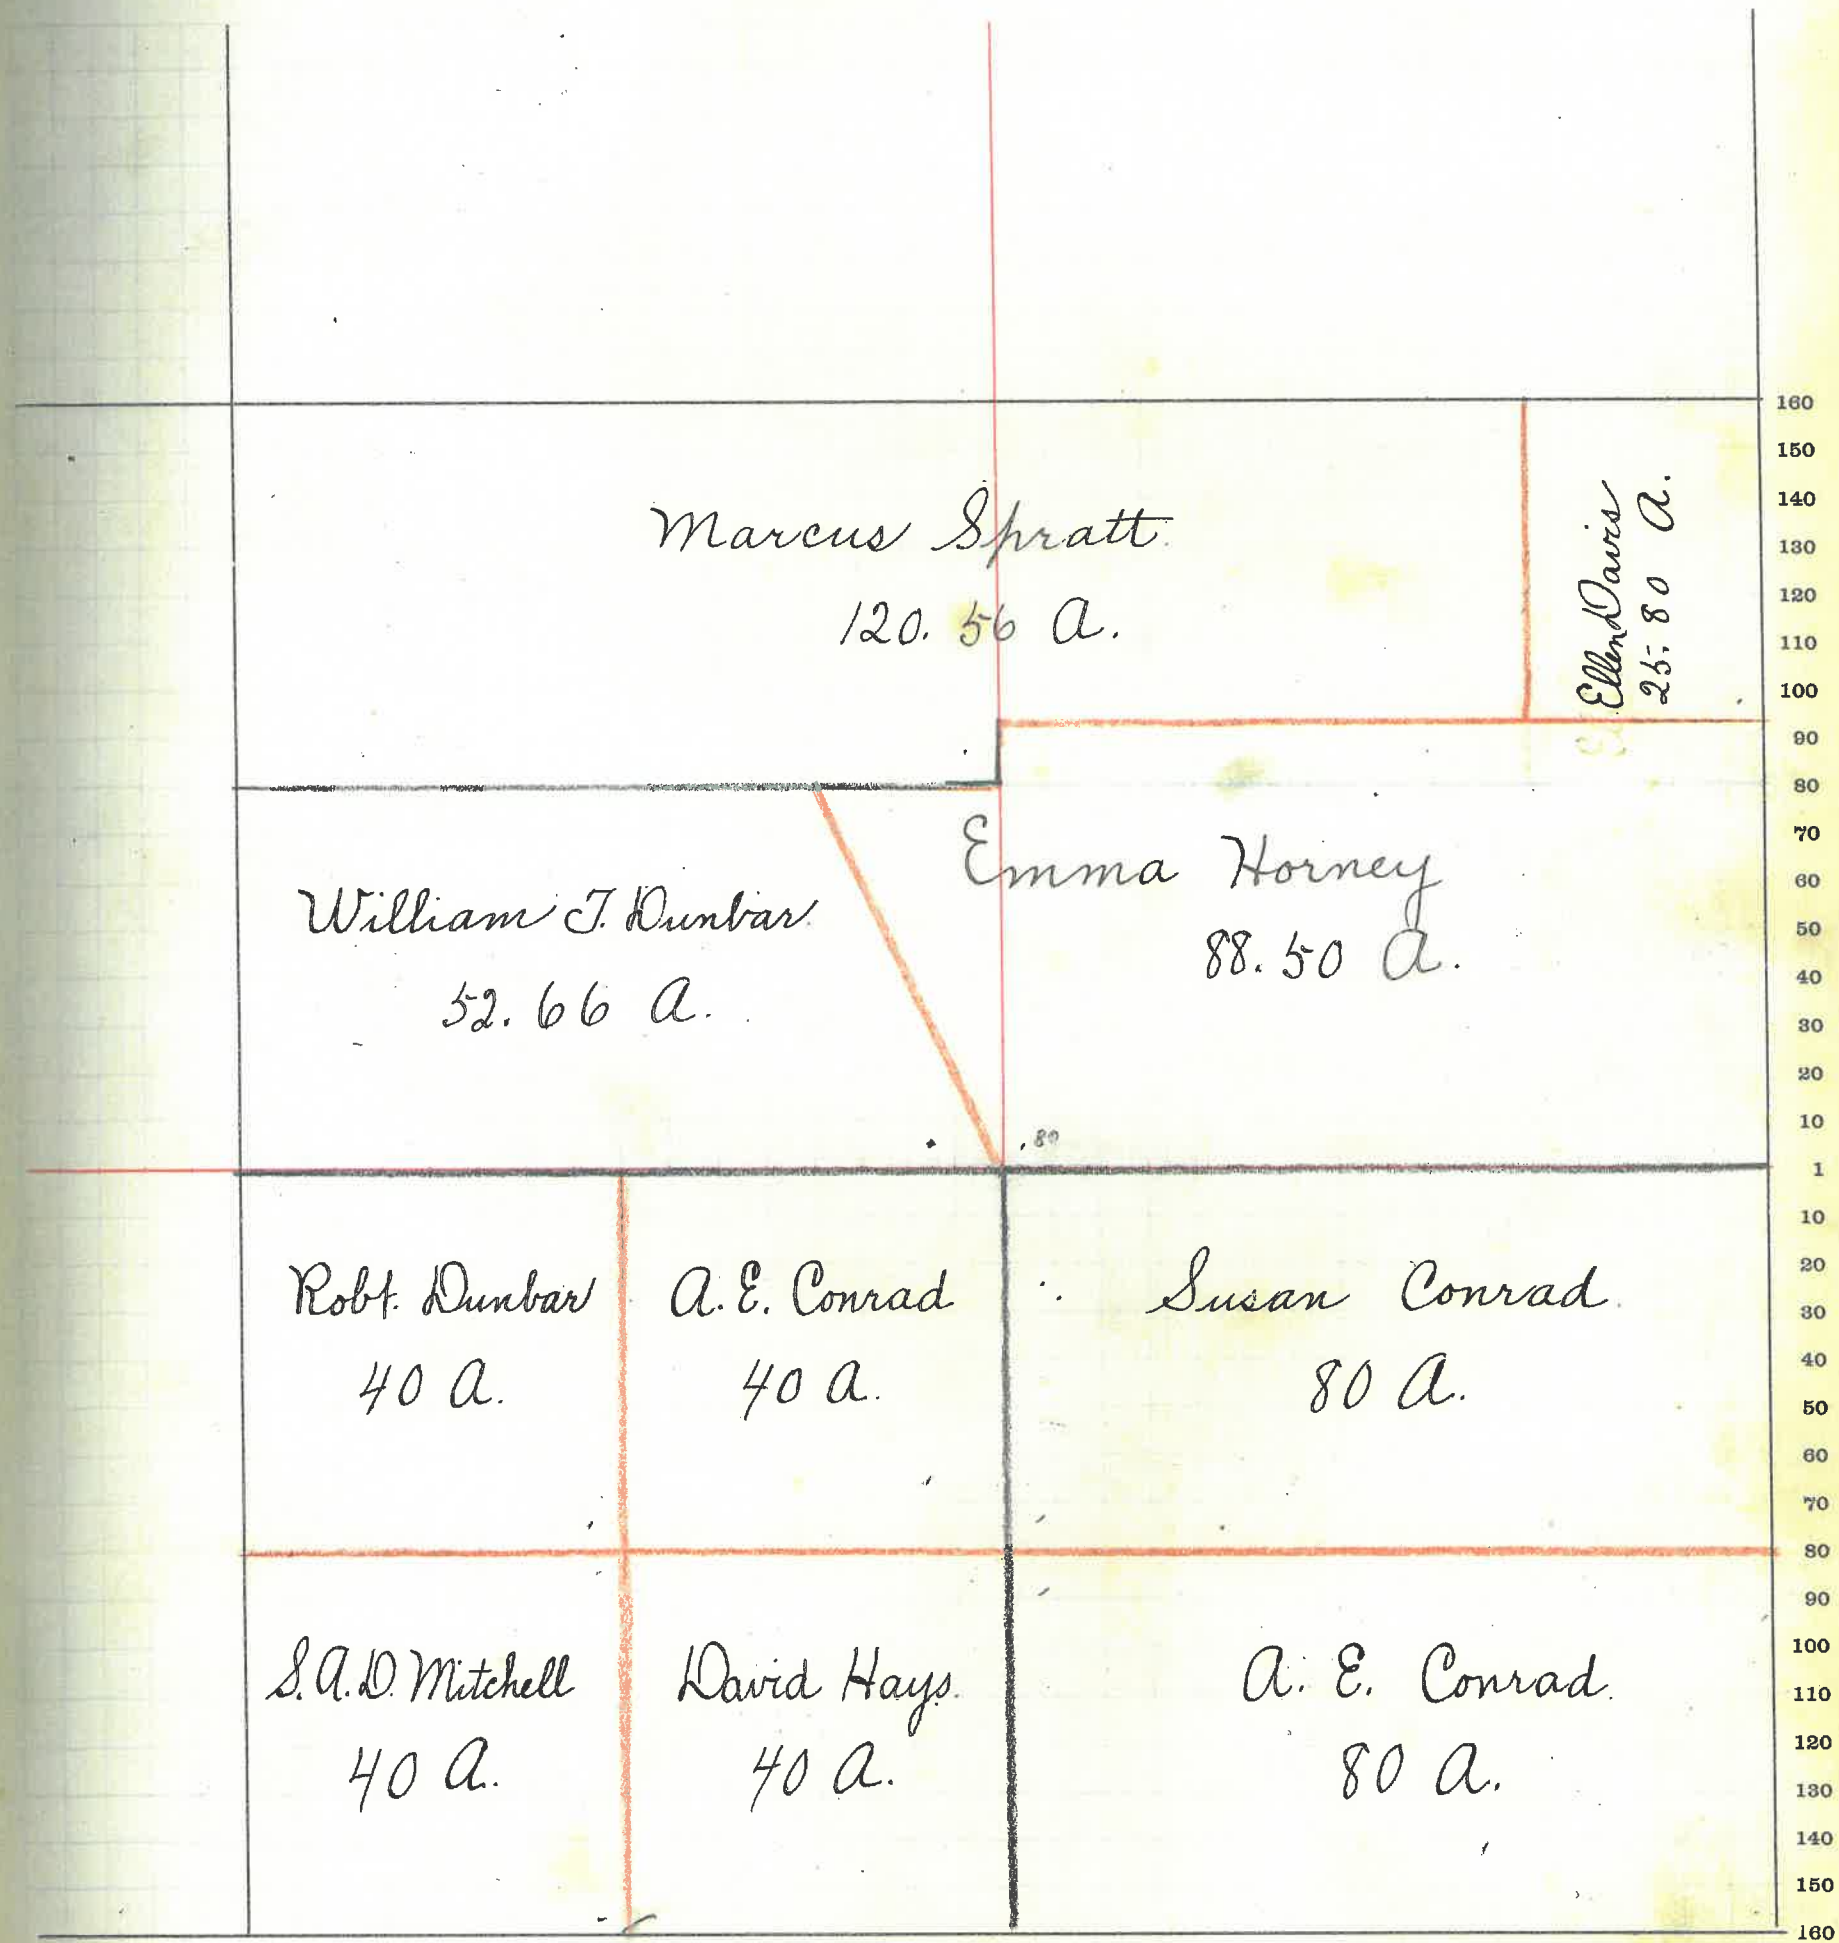 Marcus Spratt
120.56 A.
Ellen Davis
25.80 A.
William T. Dunbar
52.66 A.
Emma Horney
88.50 A.
.80
Robt. Dunbar
40 A.
A. E. Conrad
40 A.
Susan Conrad
80 A.
S. A. D. Mitchell
40 A.
David Hays
40 A.
A. E. Conrad
80 A.
160
150
140
130
120
110
100
90
80
70
60
50
40
30
20
10
1
10
20
30
40
50
60
70
80
90
100
110
120
130
140
150
160